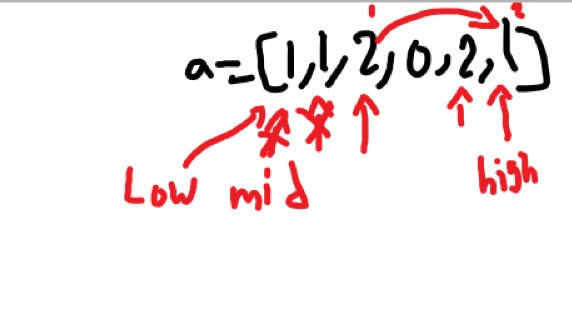 1 2
a=[1,1,2,0,2,1]
Low mid high